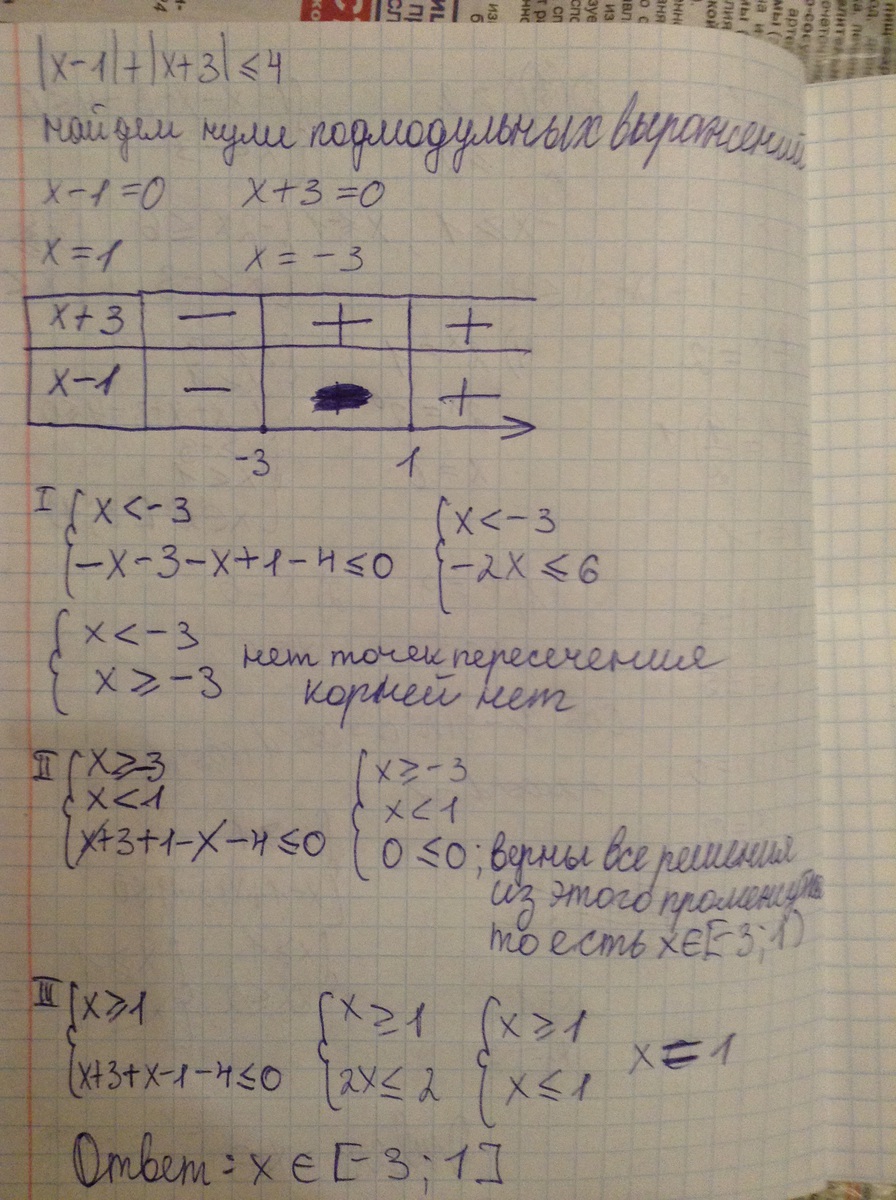 |x-1|+|x+3|≤4
найдем нули подмодульных выражений
x-1=0 x+3=0
x=1 x=-3
x+3 — + +
x-1 — +
-3 1
I { x<-3 { x<-3
-x-3-x+1-4≤0 -2x≤6
{ x<-3 нет точек пересечения
x≥-3 корней нет
II { x≥-3 { x≥-3
x<1 x<1
x+3+1-x-4≤0 0≤0; верны все решения
из этого
то есть x∈[-3;1)
III { x≥1 { x≥1 { x≥1 x=1
x+3+x-1-4≤0 2x≤2 x≤1
Ответ: x∈[-3;1]